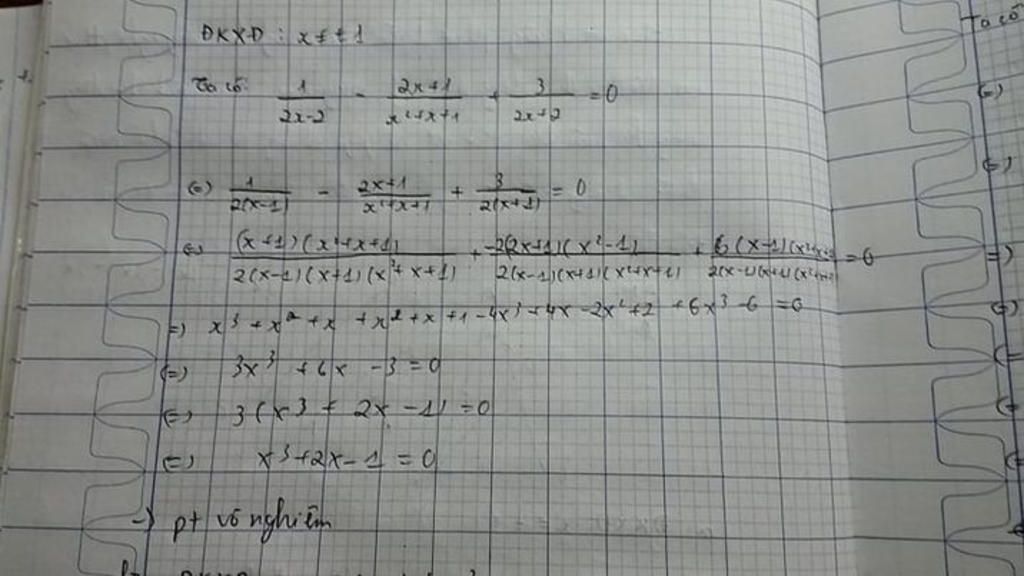 ĐKXĐ : x ≠ ±1
Ta có: 1/(2x-2) - (2x+1)/(x²+x+1) + 3/(2x+2) = 0
(=) 1/(2(x-1)) - (2x+1)/(x²+x+1) + 3/(2(x+1)) = 0
(=) (x+1)(x²+x+1)/(2(x-1)(x+1)(x²+x+1)) + -2(2x+1)(x²-1)/(2(x-1)(x+1)(x²+x+1)) + 6(x-1)(x²+x+1)/(2(x-1)(x+1)(x²+x+1)) = 0
=) x³ + x² + x + x² + x + 1 - 4x³ + 4x - 2x² + 2 + 6x³ - 6 = 0
(=) 3x³ + 6x - 3 = 0
(=) 3(x³ + 2x - 1) = 0
(=) x³ + 2x - 1 = 0
-) pt vô nghiệm
Ta có
(=)
(=)
=)
(=)
(=
(=
(=
(=